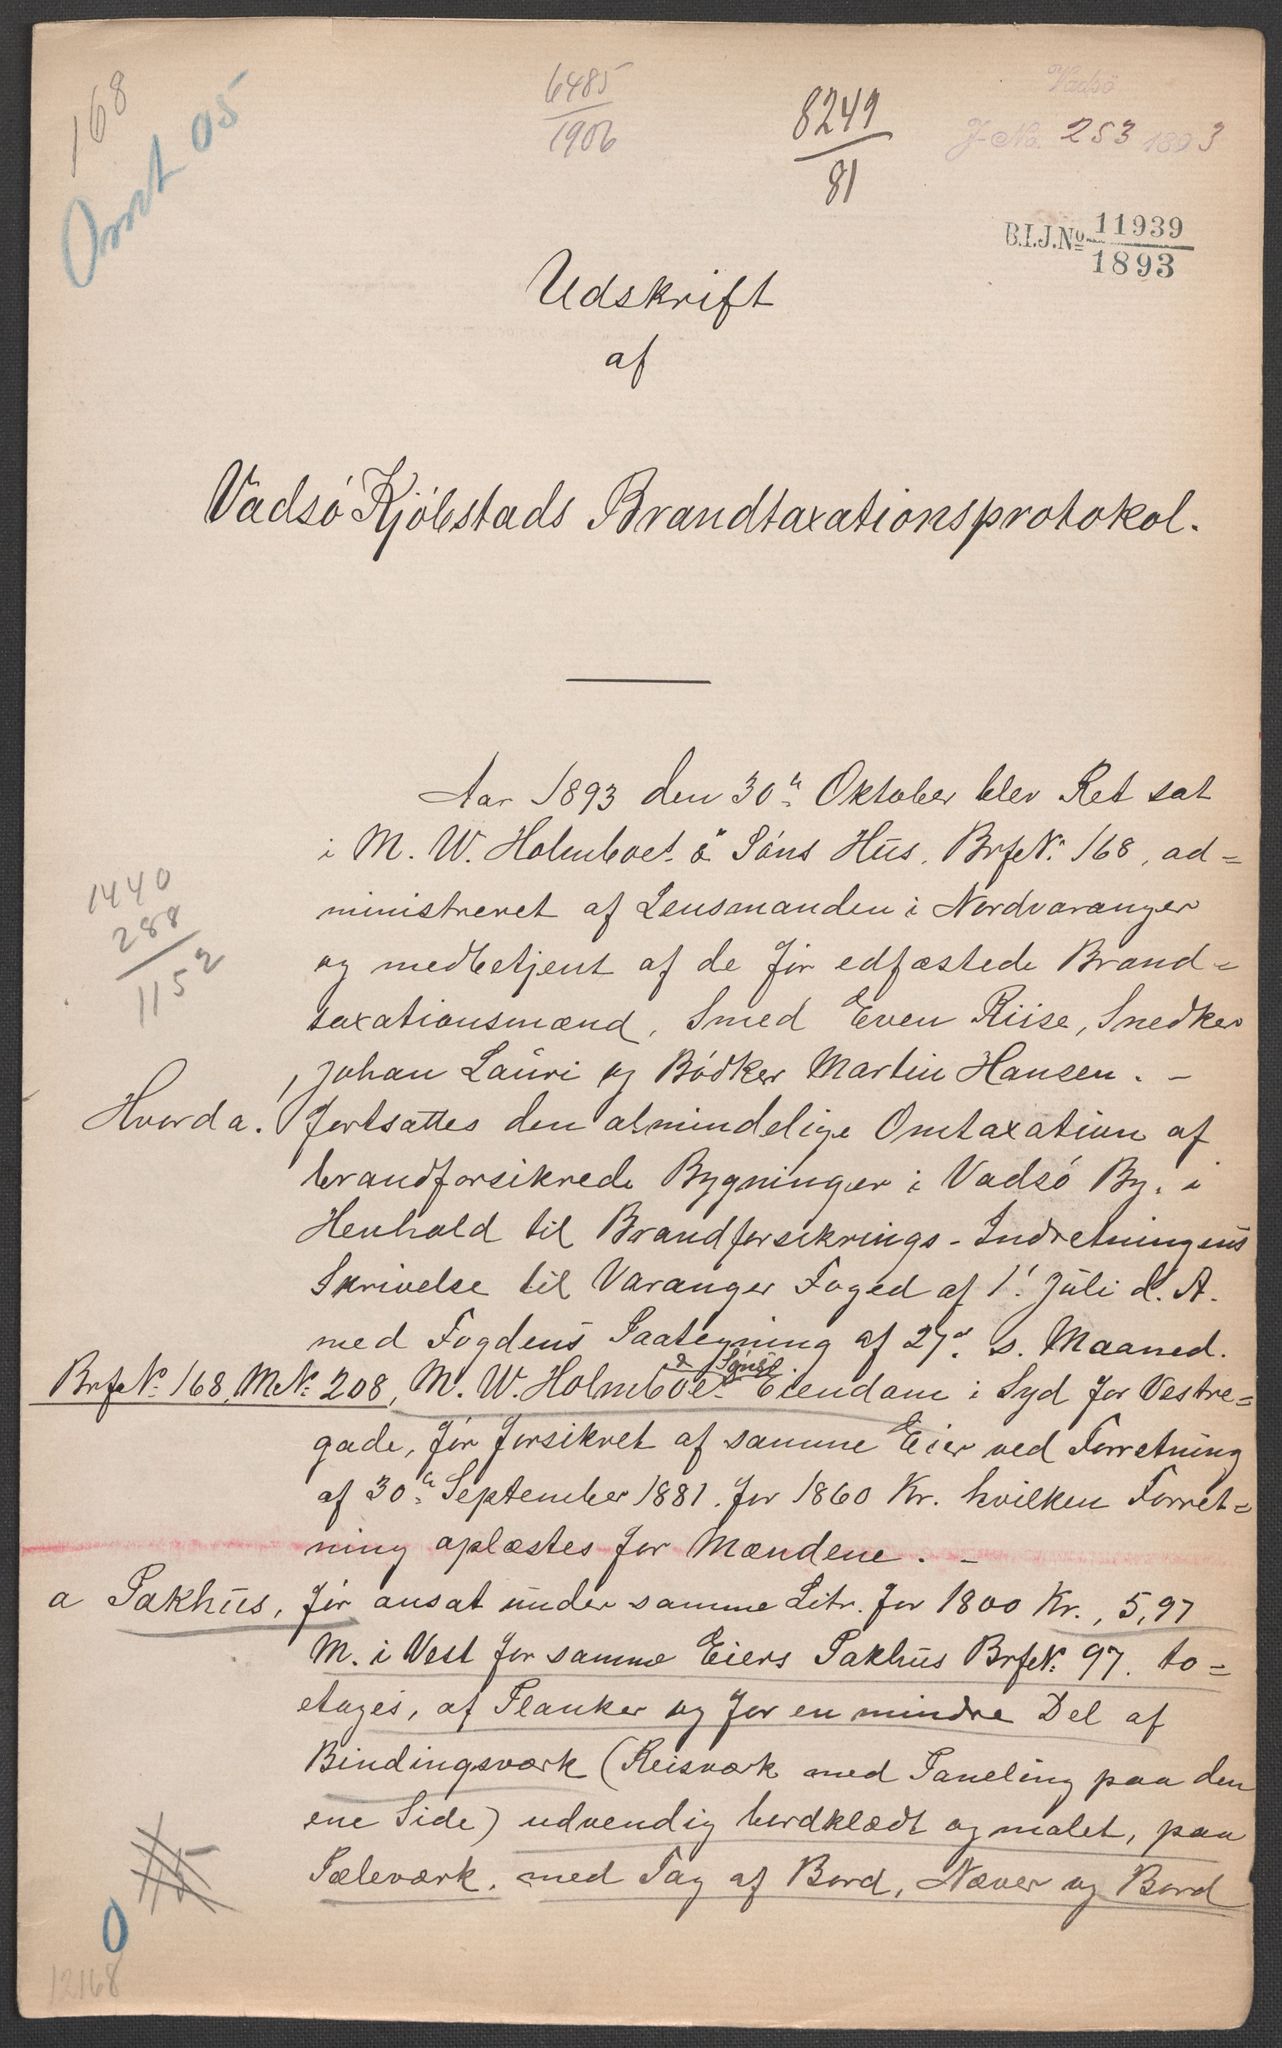 168
Omt 05
6485
1906
8249
81
Vadsö
J-No. 253 1893
B.I.J.No 11939
1893
Udskrift
af
Vadsö Kjöbstads Brandtaxationsprotokol.
Aar 1893 den 30te Oktober blev Ret sat
i M. W. Holmboe & Söns Hus, Brfo No. 168, ad=
ministreret af Lensmanden i Nordvaranger
og medbetjent af de för edfæstede Brand=
taxationsmænd, Smed Even Riise, Snedker
Johan Lauri og Bödker Martin Hansen. -
1440
288
1152
Hvorda. fortsattes den almindelige Omtaxation af
brandforsikrede Bygninger i Vadsö By. i
Henhold til Brandforsikrings-Indretningens
Skrivelse til Varanger Foged af 1. Juli d. A.
med Fogdens Paategning af 27de s. Maaned.
Brfo No. 168, M No. 208, M. W. Holmboe & Söns Eiendom i Syd for Vestre=
gade, för forsikret af samme Eier ved Forretning
af 30te September 1881 for 1860 Kr. hvilken Forret=
ning oplæstes for Mændene. -
a Pakhus, för ansat under samme Litr. for 1800 Kr., 5,97
M. i Vest for samme Eiers Pakhus Brfo No. 97. to=
etages, af Planker og for en mindre Del af
Bindingsværk (Reisværk med Paneling paa den
ene Side) udvendig bordklædt og malet, paa
Pæleværk, med Tag af Bord, Næver og Bord
0
12168